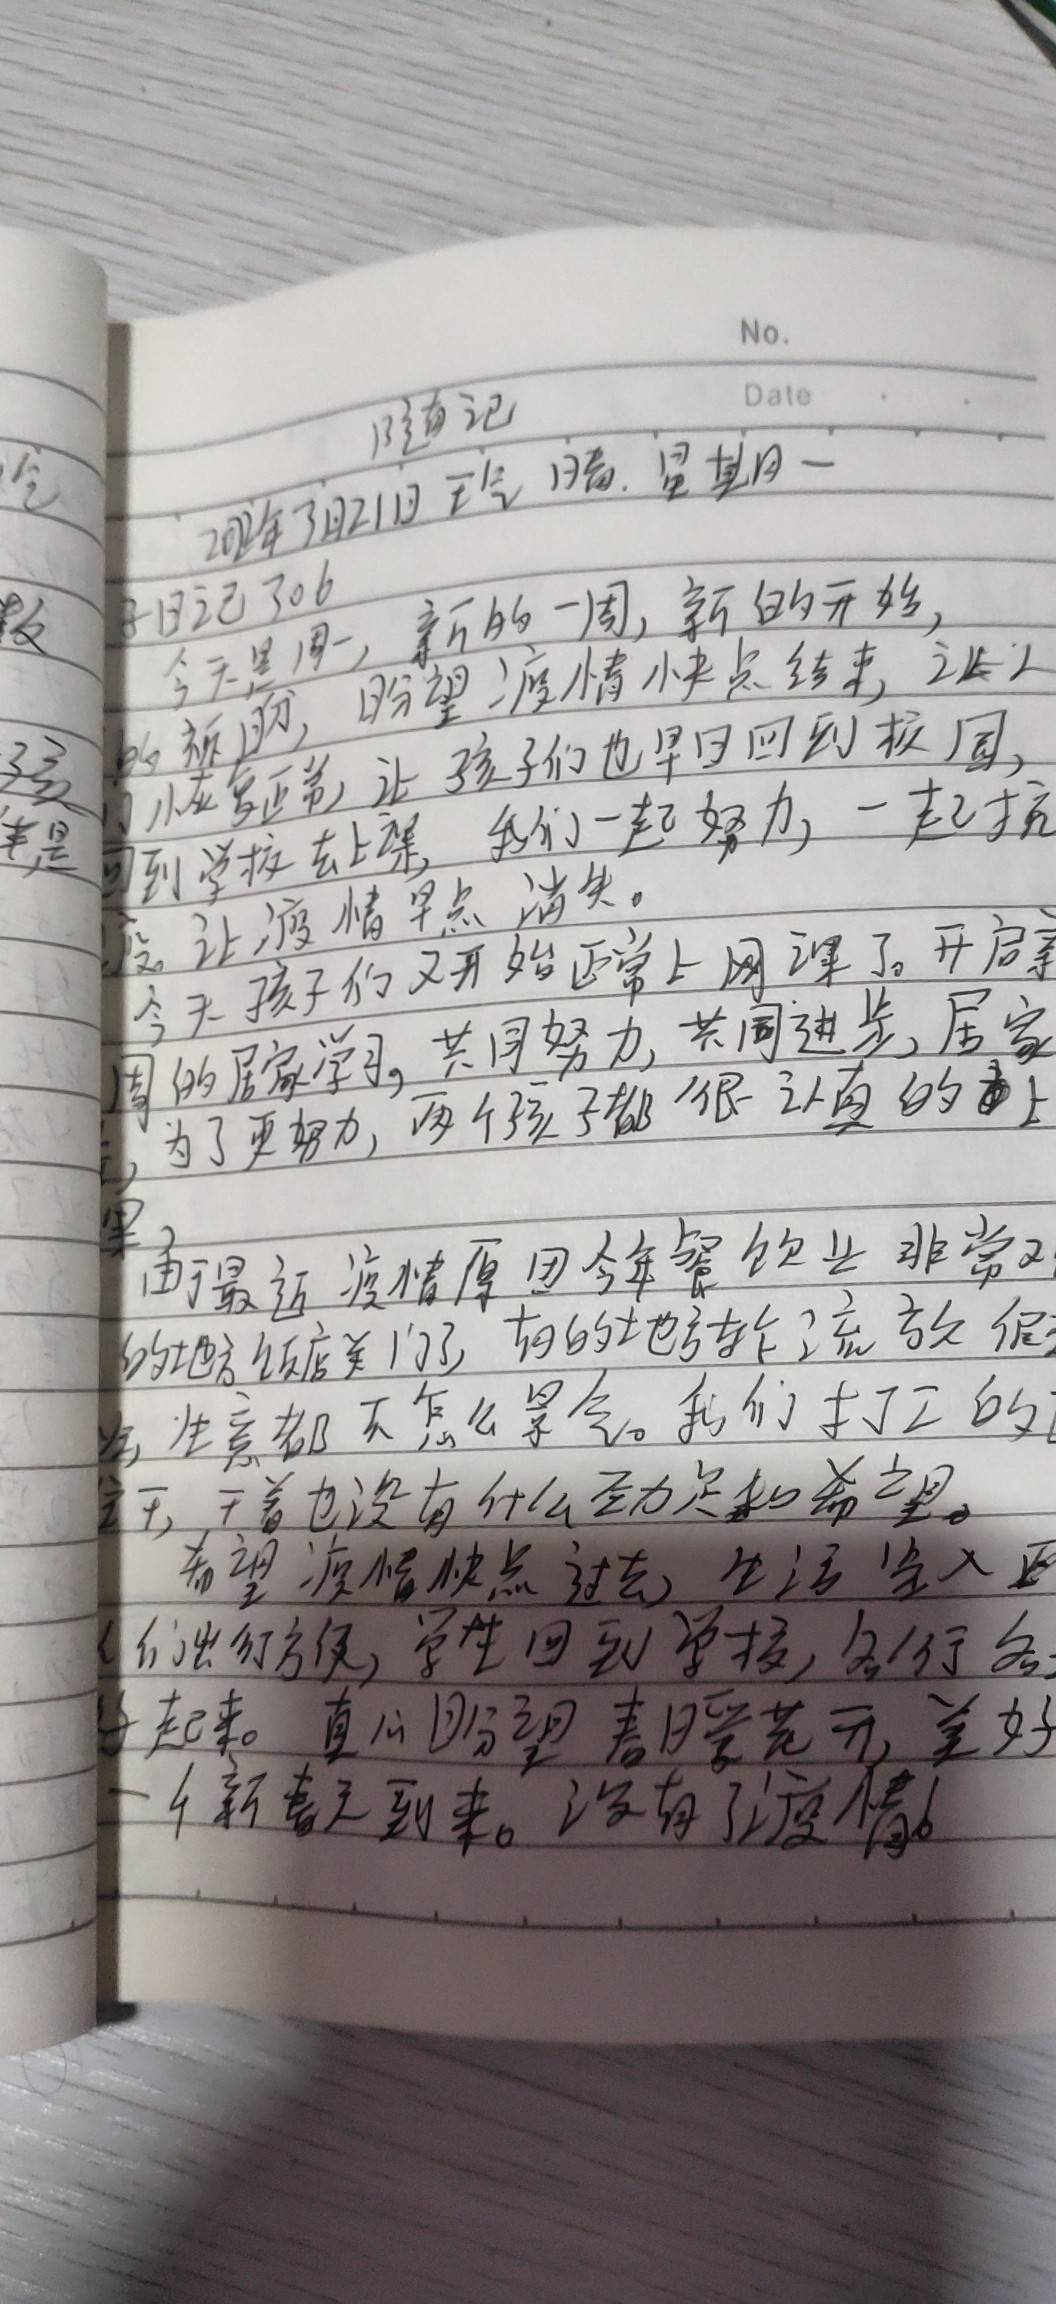 No.
Date
随记
2022年3月21日 天气 晴. 星期一
日记306
今天是周一, 新的一周, 新的开始,
的期盼, 盼望疫情快点结束, 让人
们恢复正常, 让孩子们也早日回到校园,
回到学校去上课, 我们一起努力, 一起抗
疫, 让疫情早点消失。
今天孩子们又开始正常上网课了。开启新
周的居家学习。共同努力, 共同进步, 居家
为了更努力, 两个孩子都很认真的上
课。
由于最近疫情原因今年餐饮业非常
的地方饭店关门了, 有的地方
生意都不怎么景气。我们打工的
天, 干着也没有什么动力和希望。
希望疫情快点过去, 生活步入正
人们出行方便, 学生回到学校, 各行各
起来。真心盼望春暖花开, 美好
一个新春天到来。没有了疫情。
会
数
孩
是